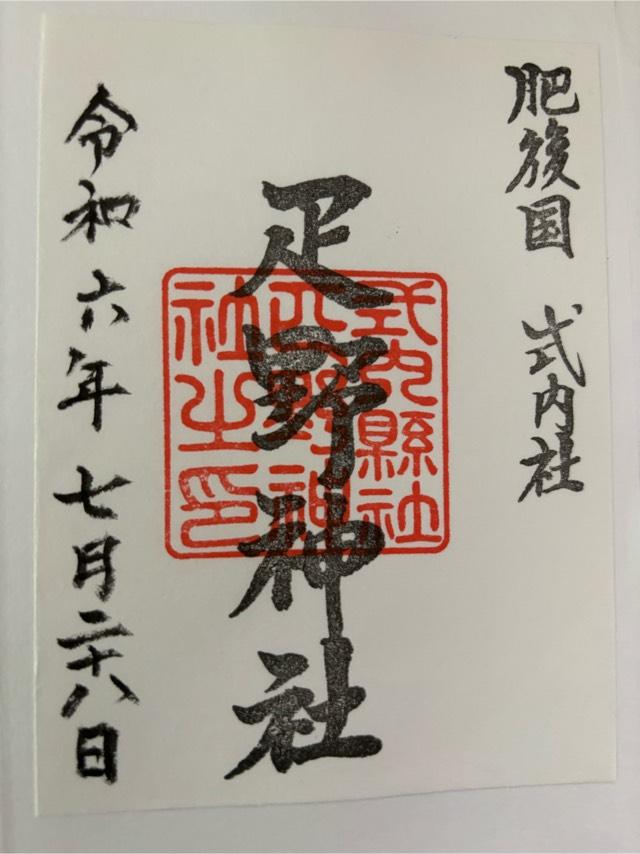 肥後国 式内社
疋野神社
式内縣社
疋野神
社之印
令和六年七月二十八日